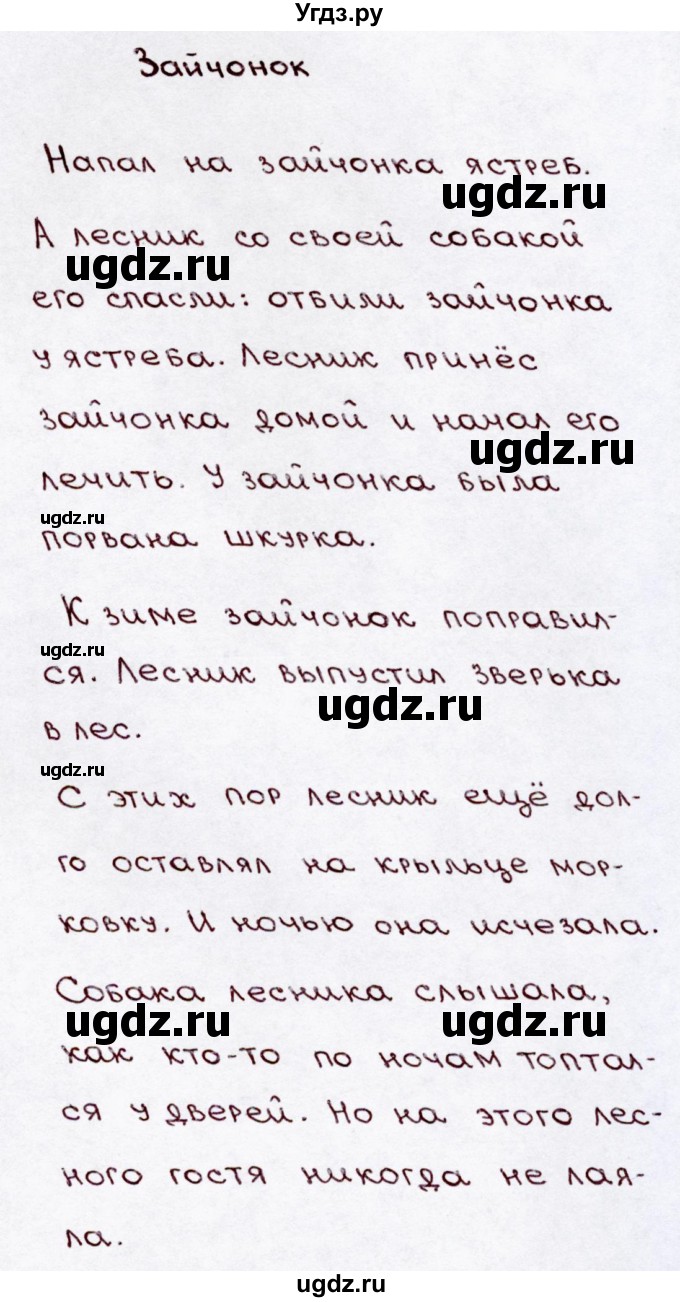 Угдз.ру
Зайчонок
Напал на зайчонка ястреб.
ugdz.ru
А лесник со своей собакой
ugdz.ru
его спасли: отбили зайчонка
у ястреба. Лесник принёс
зайчонка домой и начал его
ugdz.ru
лечить. У зайчонка была
ugdz.ru
порвана шкурка.
К зиме зайчонок поправил-
ugdz.ru
ся. Лесник выпустил зверька
ugdz.ru
в лес.
ugdz.ru
С этих пор лесник ещё дол-
го оставлял на крыльце мор-
ковку. И ночью она исчезала.
Собака лесника слышала,
ugdz.ru ugdz.ru
как кто-то по ночам топтал-
ся у дверей. Но на этого лес-
ного гостя никогда не лая-
ла.
ugdz.ru